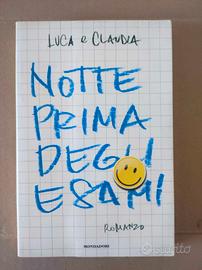 LUCA e CLAUDIA
NOTTE
PRIMA
DEGLI
ESAMI
ROMANZO
MONDADORI
Subito